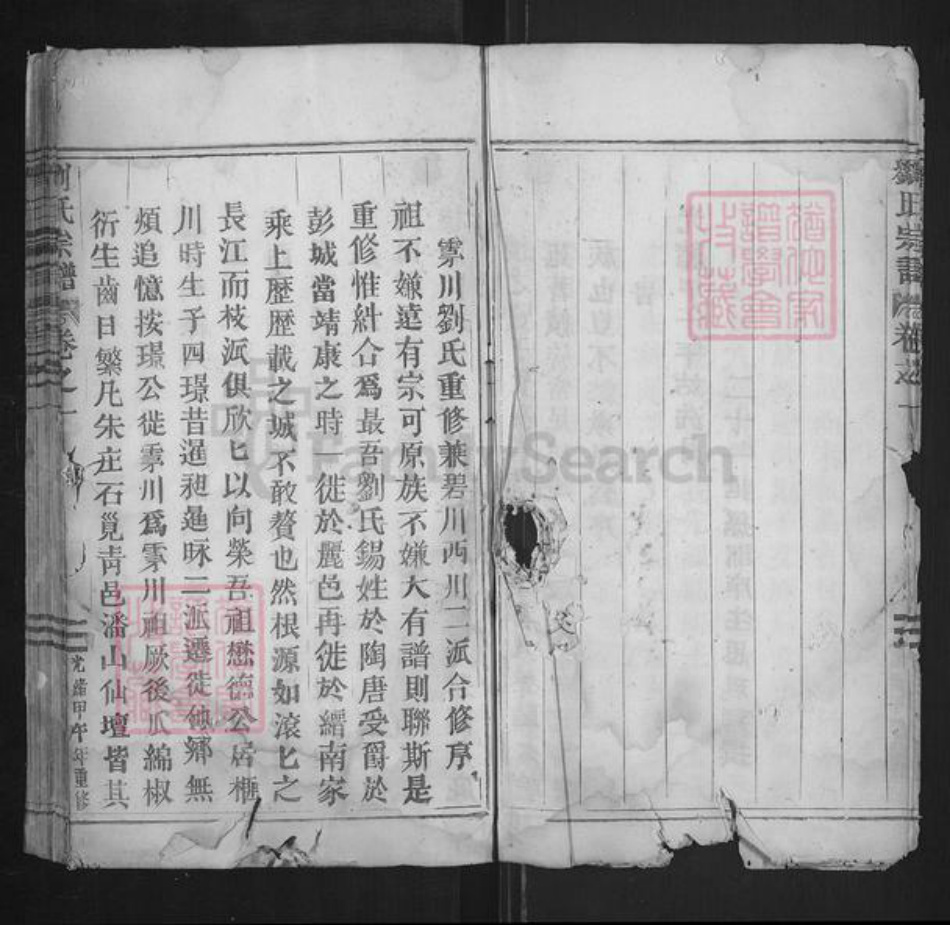 劉氏宗譜 卷之一
霁川劉氏重修兼碧川西川二派合修序
祖不嫌遠有宗可原族不嫌大有譜則聯斯是
重修惟糾合爲最吾劉氏錫姓於陶唐受爵於
彭城當靖康之時一徙於麗邑再徙於縉南家
乘上歷歷載之城不敢贅也然根源如滾匕之
長江而枝派俱欣匕以向榮吾祖懋德公居櫃
川時生子四璟昔暹昶
二派遷徙他鄉無
煩追憶按璟公徙霁川爲霁川祖厥後瓜綿椒
衍生齒日繁凡朱庄石筧靑邑潘山仙壇皆其
劉氏宗譜 卷之一
光緒甲午年重修
猶他家譜學會收藏
猶他家譜學會收藏
FamilySearch